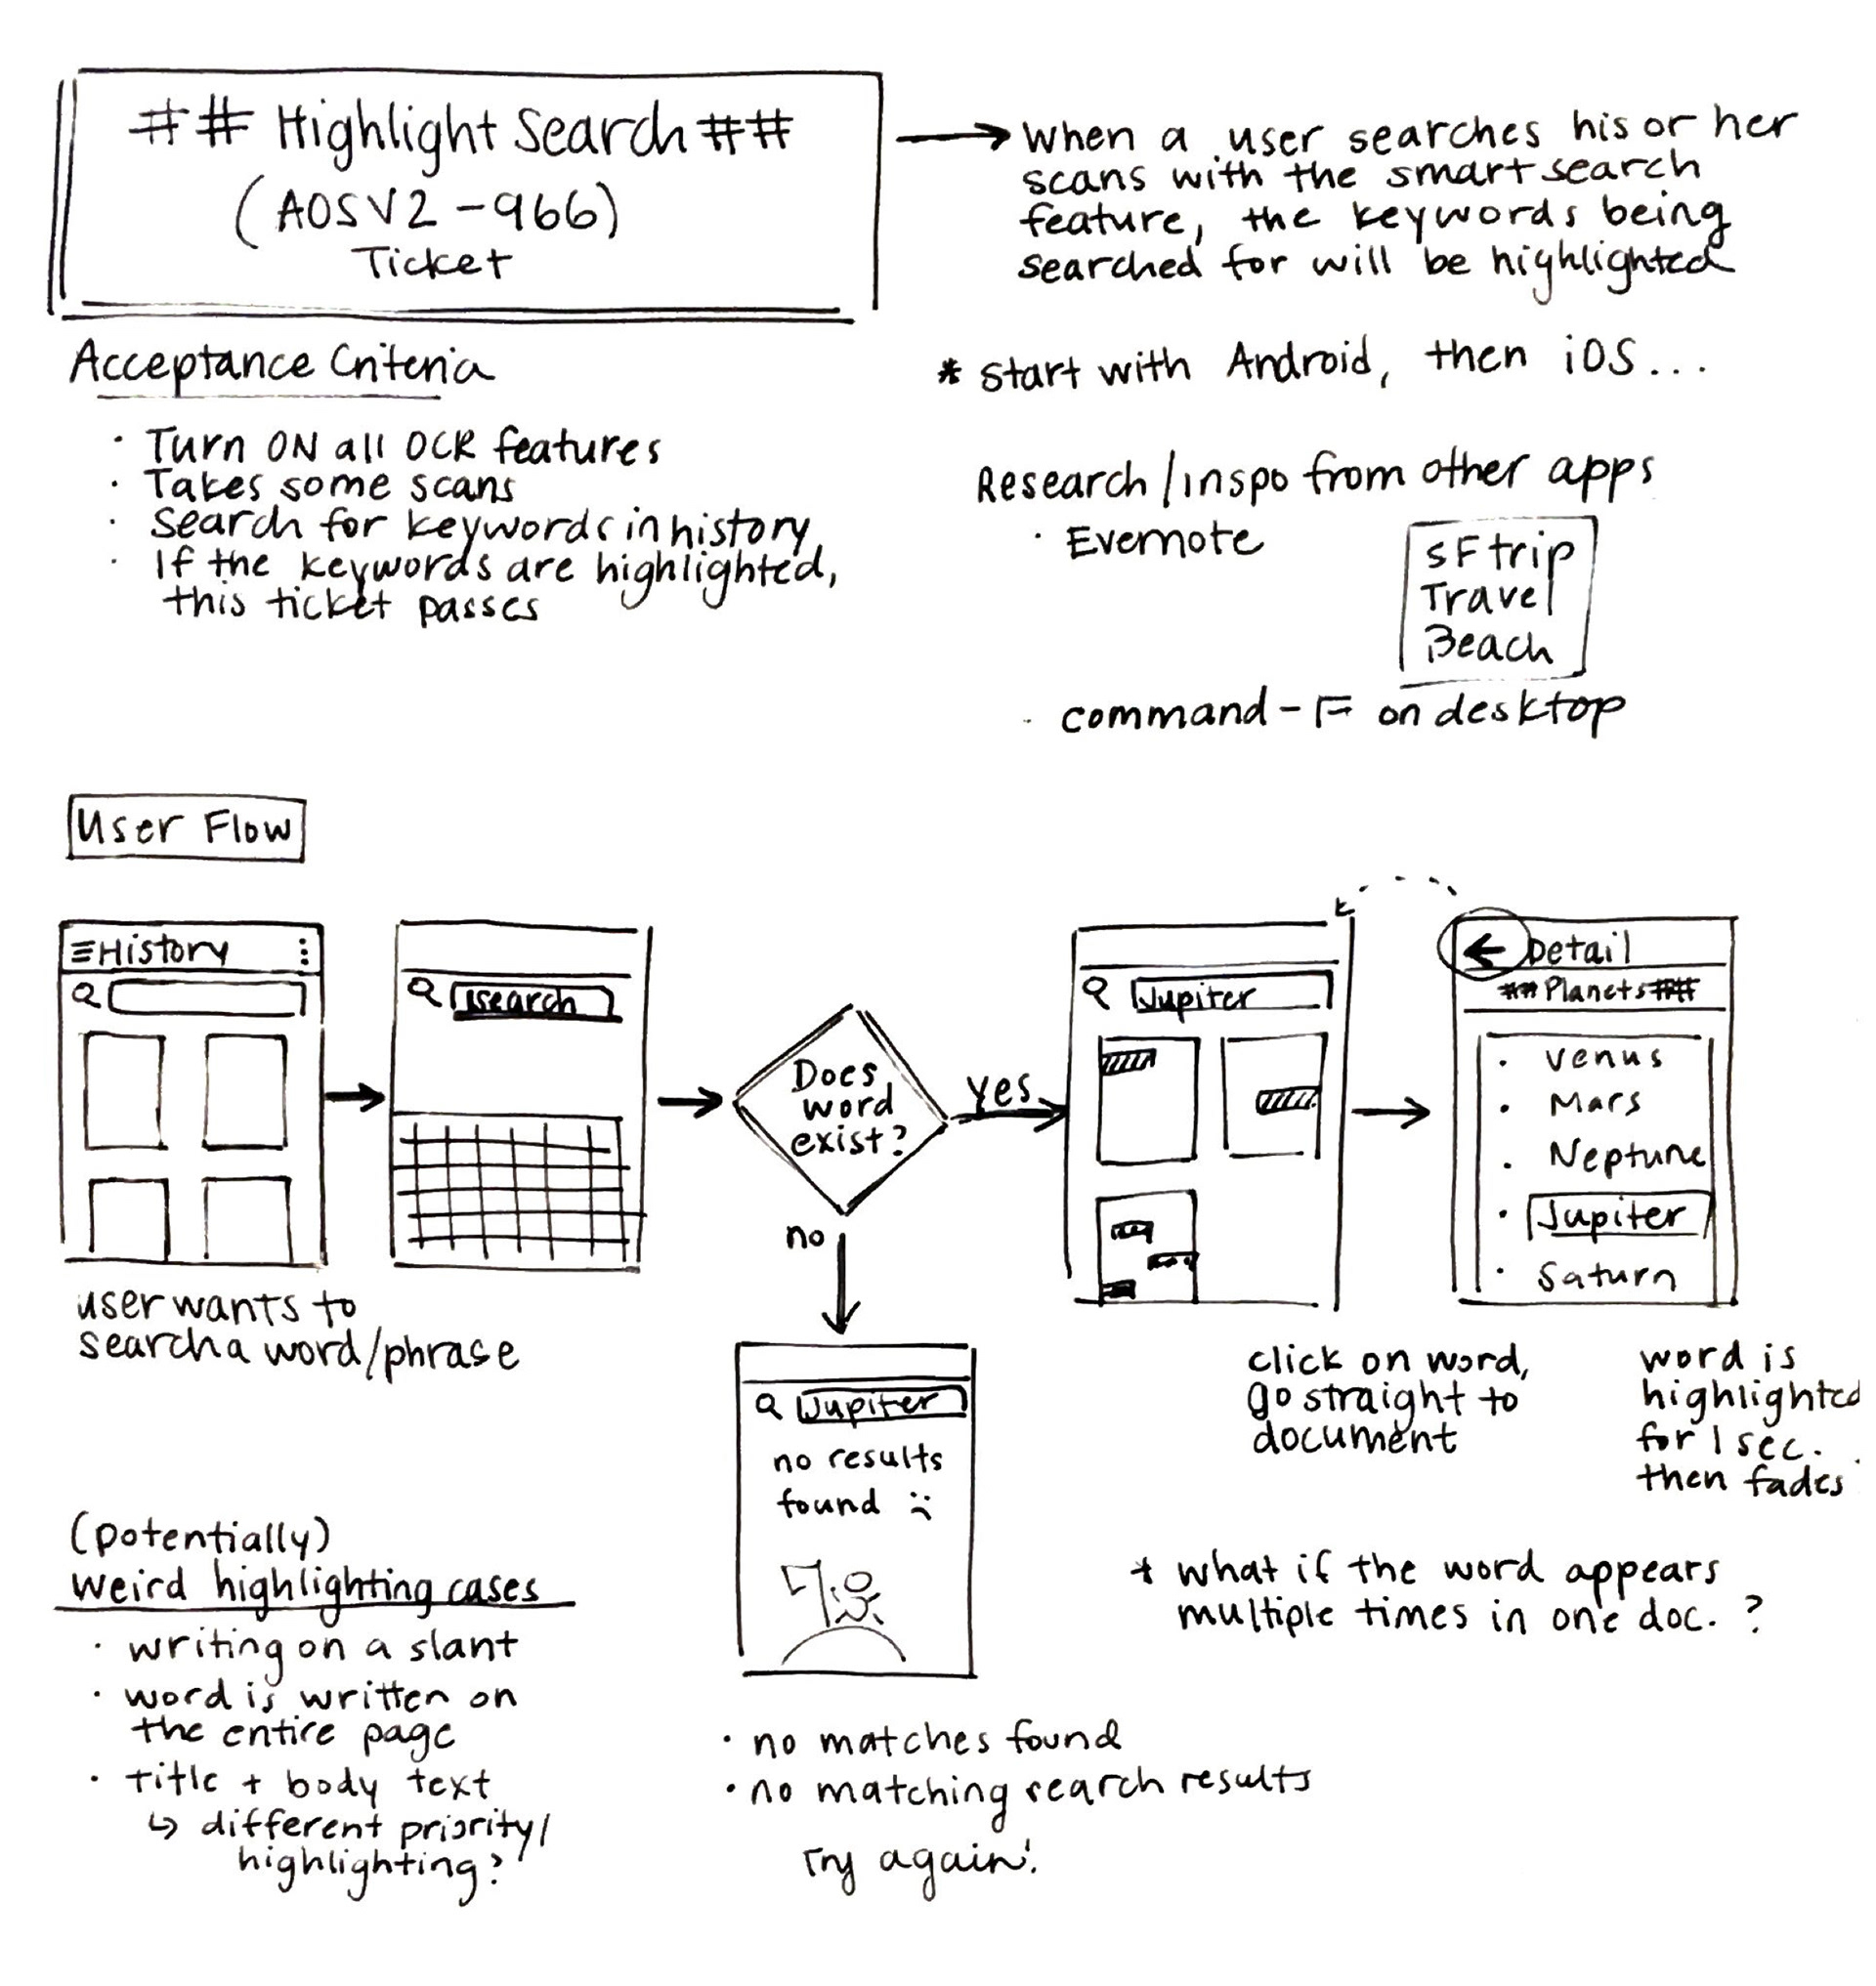 ## Highlight Search ##
(AOSV2-966)
Ticket
when a user searches his or her
scans with the smart search
feature, the keywords being
searched for will be highlighted
* start with Android, then iOS...
Acceptance Criteria
· Turn ON all OCR features
· Takes some scans
· Search for keywords in history
· If the keywords are highlighted,
this ticket passes
Research/inspo from other apps
· Evernote
SF trip
Travel
Beach
· command-F on desktop
User Flow
History
user wants to
search a word/phrase
search
Does
word
exist?
yes
no
Jupiter
click on word,
go straight to
document
← Detail
## Planets ##
· Venus
· Mars
· Neptune
· Jupiter
· Saturn
word is
highlighted
for 1 sec.
then fades
* what if the word appears
multiple times in one doc. ?
Jupiter
no results
found :(
· no matches found
· no matching search results
Try again!
(potentially)
weird highlighting cases
· writing on a slant
· word is written on
the entire page
· title + body text
↳ different priority/
highlighting?